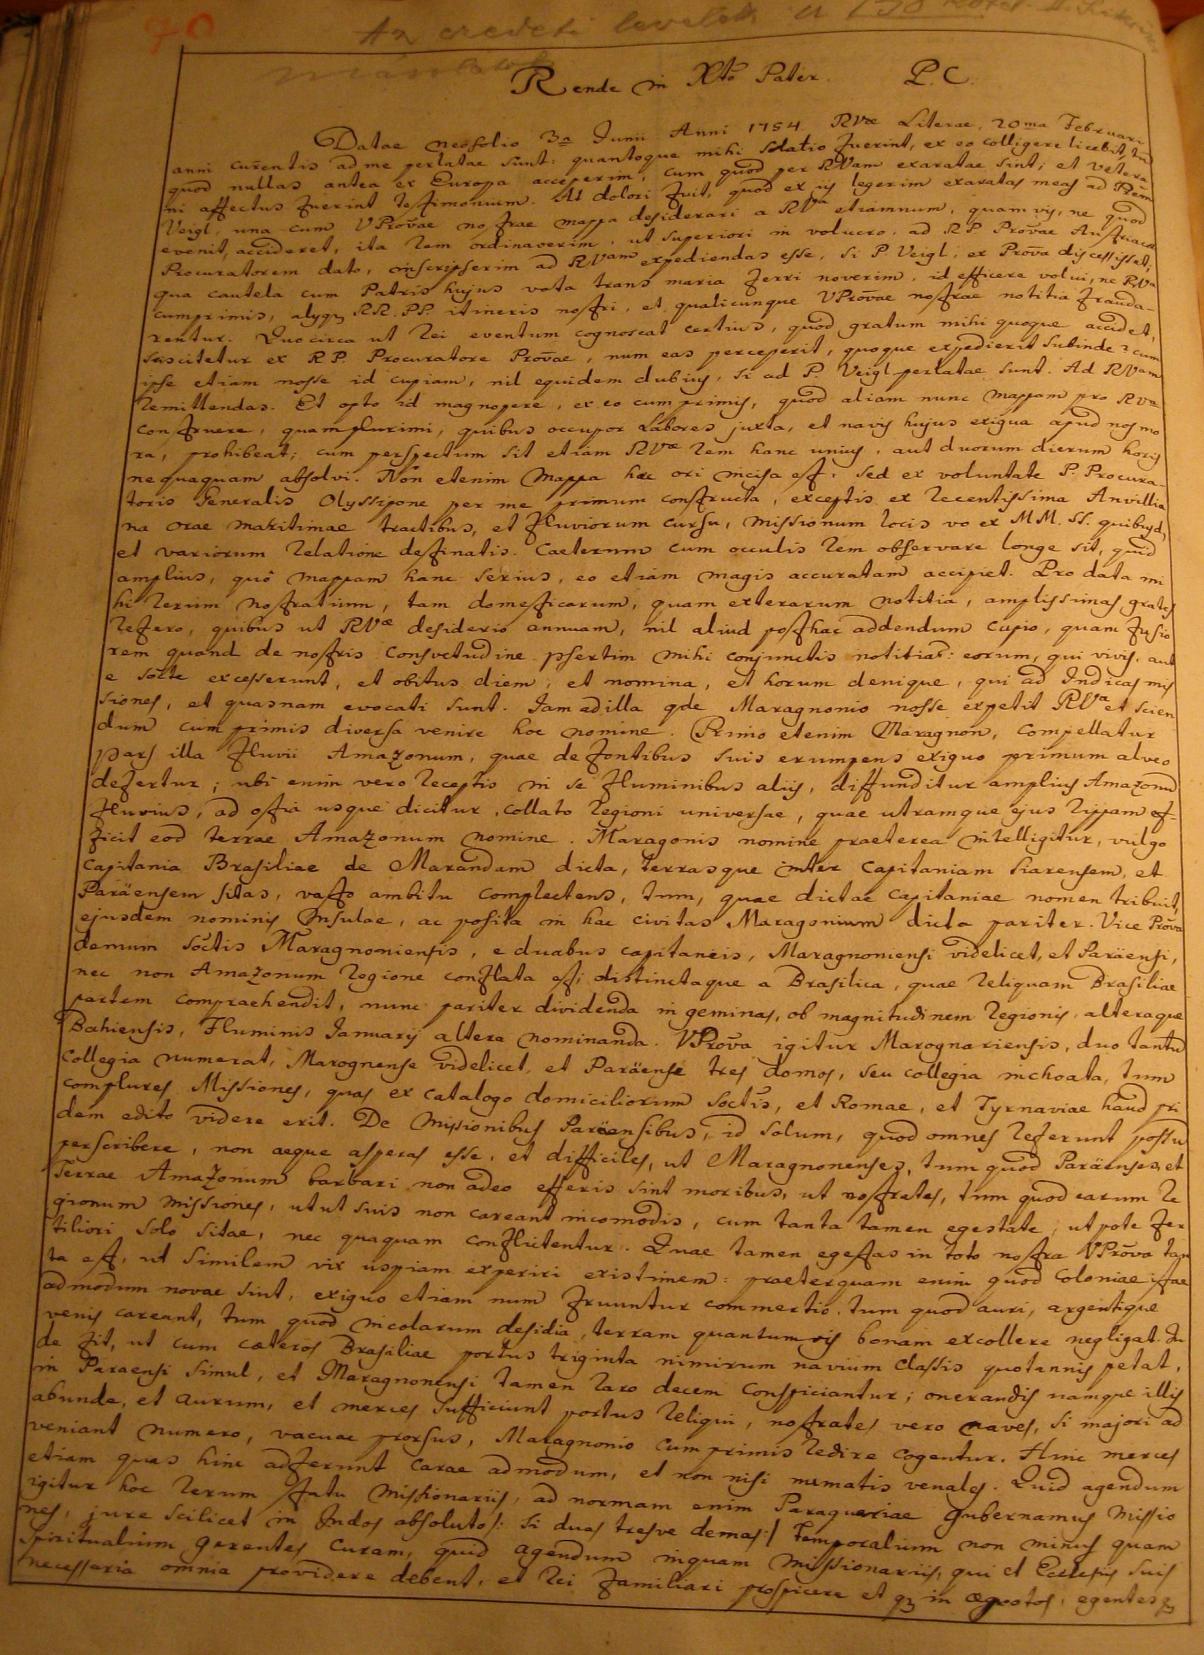 70
Az eredeti levelek a
Rende in Xto Pater. P.C.
Datae Neosolio 3a Junii Anni 1754. RVae Literae, 20ma Februarii
anni currentis ad me perlatae sunt: quantoque mihi solatio fuerint, ex eo colligere licebit, tum
quod nullas antea ex Europa acceperim, cum quod per RVam exaratae sint; et vetera
ni affectus fuerint testimonium. At dolori fuit, quod ex iis legerim exaratas meas ad Rdum
Veigl, una cum VProvae nostrae mappa desiderari a RVa etiamnum, quam vis, ne quod
evenit, accideret, ita rem ordinaverim, ut superiori in volucro, ad RP Provae Austriacae
Procuratorem dato, conscripserim ad RVam expediendas esse, si P Veigl, ex Prova discessisset,
qua cautela cum Patris hujus vota trans maria ferri noverim, id efficere volui, ne RVa
cumprimis, alyq RR. PP. itineris nostri, et qualicunque VProvae nostrae notitia frauda-
rentur. Quocirca ut rei eventum cognoscat certius, quod gratum mihi quoque accidet,
suscitetur ex R P. Procuratore Provae, num eas perceperit, quoque expedierit subinde? cum
ipse etiam nosse id cupiam, nil equidem dubius, si ad P. Veigl perlatae sunt. Ad RVam
remittendas. Et opto id magnopere, ex eo cum primis, quod aliam nunc Mappam pro RVa
construere, quamplurimi, quibus occupor Labores juxta, et navis hujus exigua apud nos mo
ra, prohibeat; cum perspectum sit etiam RVae rem hanc unius, aut duorum dierum horis
nequaquam absolvi. Non etenim Mappa haec ori incisa est, sed ex voluntate P. Procura-
toris Generalis Olyssipone per me primum constructa, exceptis ex recentissima Anvillia
na orae maritimae tractibus, et fluviorum cursu, missionum locis vo ex MM. SS. quibusd,
et variorum relatione destinatis. Caeterum cum occulis rem observare longe sit, quid
amplius, quô mappam hanc serius, eo etiam magis accuratam accipiet. Pro data mi
hi rerum nostratium, tam domesticarum, quam exterarum notitia, amplissimas grates
refero, quibus ut RVae desiderio annuam, nil aliud posthac addendum cupio, quam fusio
rem quand de nostris consvetudine psertim mihi conjunctis notitiab: eorum, qui vivis, aut
e sorte excesserunt, et obitus diem, et nomina, et horum denique, qui ad Indicas mis
siones, et quasnam evocati sunt. Jam ad illa qde Maragnonio nosse expetit RVa et scien
dum cum primis diversa venire hoc nomine. Primo etenim Maragnon, compellatur
pars illa fluvii Amazonum, quae de fontibus suis erumpens exiguo primum alveo
defertur; ubi enim vero receptis in se fluminibus aliis, diffunditur amplius Amazonum
fluvius, ad ostia usque dicitur, collato regioni universae, quae utramque ejus rippam ef-
ficit eod terrae Amazonum nomine. Maragonis nomine praeterea intelligitur, vulgo
Capitania Brasiliae de Marandam dicta, terrasque inter Capitaniam Siarensem, et
Paräensem sitas, vasto ambitu complectens, tum, quae dictae capitaniae nomen tribuit,
ejusdem nominis Insulae, ac posita in hac civitas Maragonium dicta pariter. Vice Prova
demum Soctis Maragnoniensis, e duabus capitaneis, Maragnoniensi videlicet, et Paräensi,
nec non Amazonum regione conflata est, distinctaque a Brasilica, quae reliquam Brasiliae
partem compraehendit, nunc pariter dividenda in geminas, ob magnitudinem regionis, alteraque
Bahiensis, Fluminis Januarij altera nominanda. VProva igitur Marognariensis, duo tantum
Collegia numerat, Marognense videlicet, et Paräense tres domos, seu collegia inchoata, tum
complures Missiones, quas ex catalogo domiciliorum Soctis, et Romae, et Tyrnaviae haud pri
dem edito videre erit. De Missionibus Paräensibus, id solum, quod omnes referunt possu
perscribere, non aeque asperas esse, et difficiles, ut Maragnonenses, tum quod Paräenses, et
Terrae Amazonum barbari non adeo efferis sint moribus, ut nostrates, tum quod earum re
gionum missiones, utut suis non careant incomodis, cum tanta tamen egestate, ut pote fer
tiliori solo sitae, nec quaquam conflictentur. Quae tamen egestas in toto nostra VProva tan
ta est, ut similem vix uspiam experiri existimem: praeterquam enim quod coloniae istae
admodum novae sint, exiguo etiam num fruuntur commertio, tum quod auri, argentique
venis careant, tum quod incolarum desidia, terram quantum vis bonam excollere negligat. In
de fit, ut cum caeteros Brasiliae portus triginta nimirum navium classis quotannis petat,
in Paraensi simul, et Maragnonensi tamen raro decem conspiciantur; onerandis namque illis
abunde, et aurum, et merces sufficiunt portus reliqui, nostrates vero naves, si majori ad
veniant numero, vacuae prorsus, Maragnonio cum primis redire cogentur. Hinc merces
etiam quas hinc adferunt carae admodum, et non nisi numatis venales. Quid agendum
igitur hoc rerum statu Missionariis, ad normam enim Paraquariae gubernamus Missio
nes, jure scilicet in Indos absoluto /: si duas tresve demas :/ temporalium non minus quam
spiritualium gerentes curam, quid agendum inquam Missionariis, qui et Ecclesiis suis
necessaria omnia providere debent, et rei familiari prospicere et qz in aegrotos, egentesqz